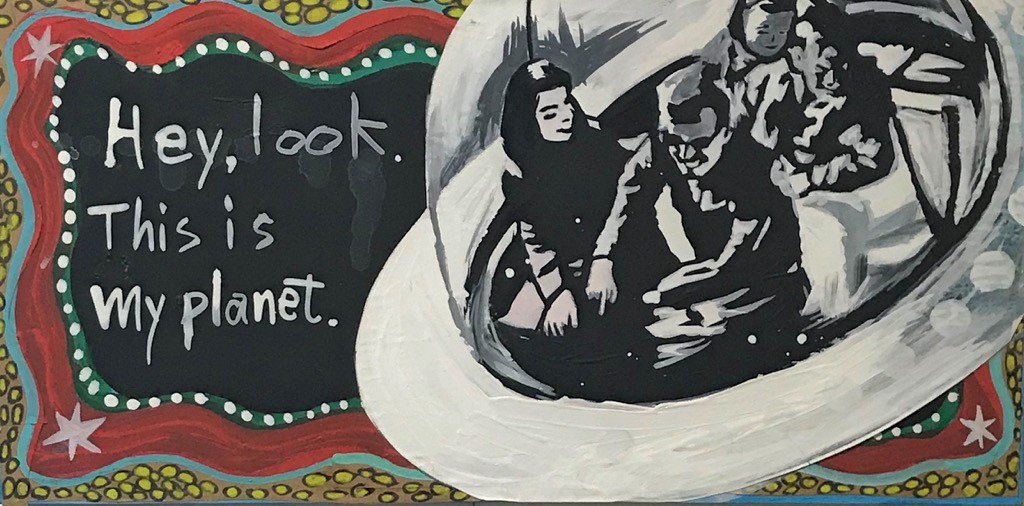 Hey, look.
This is
my planet.